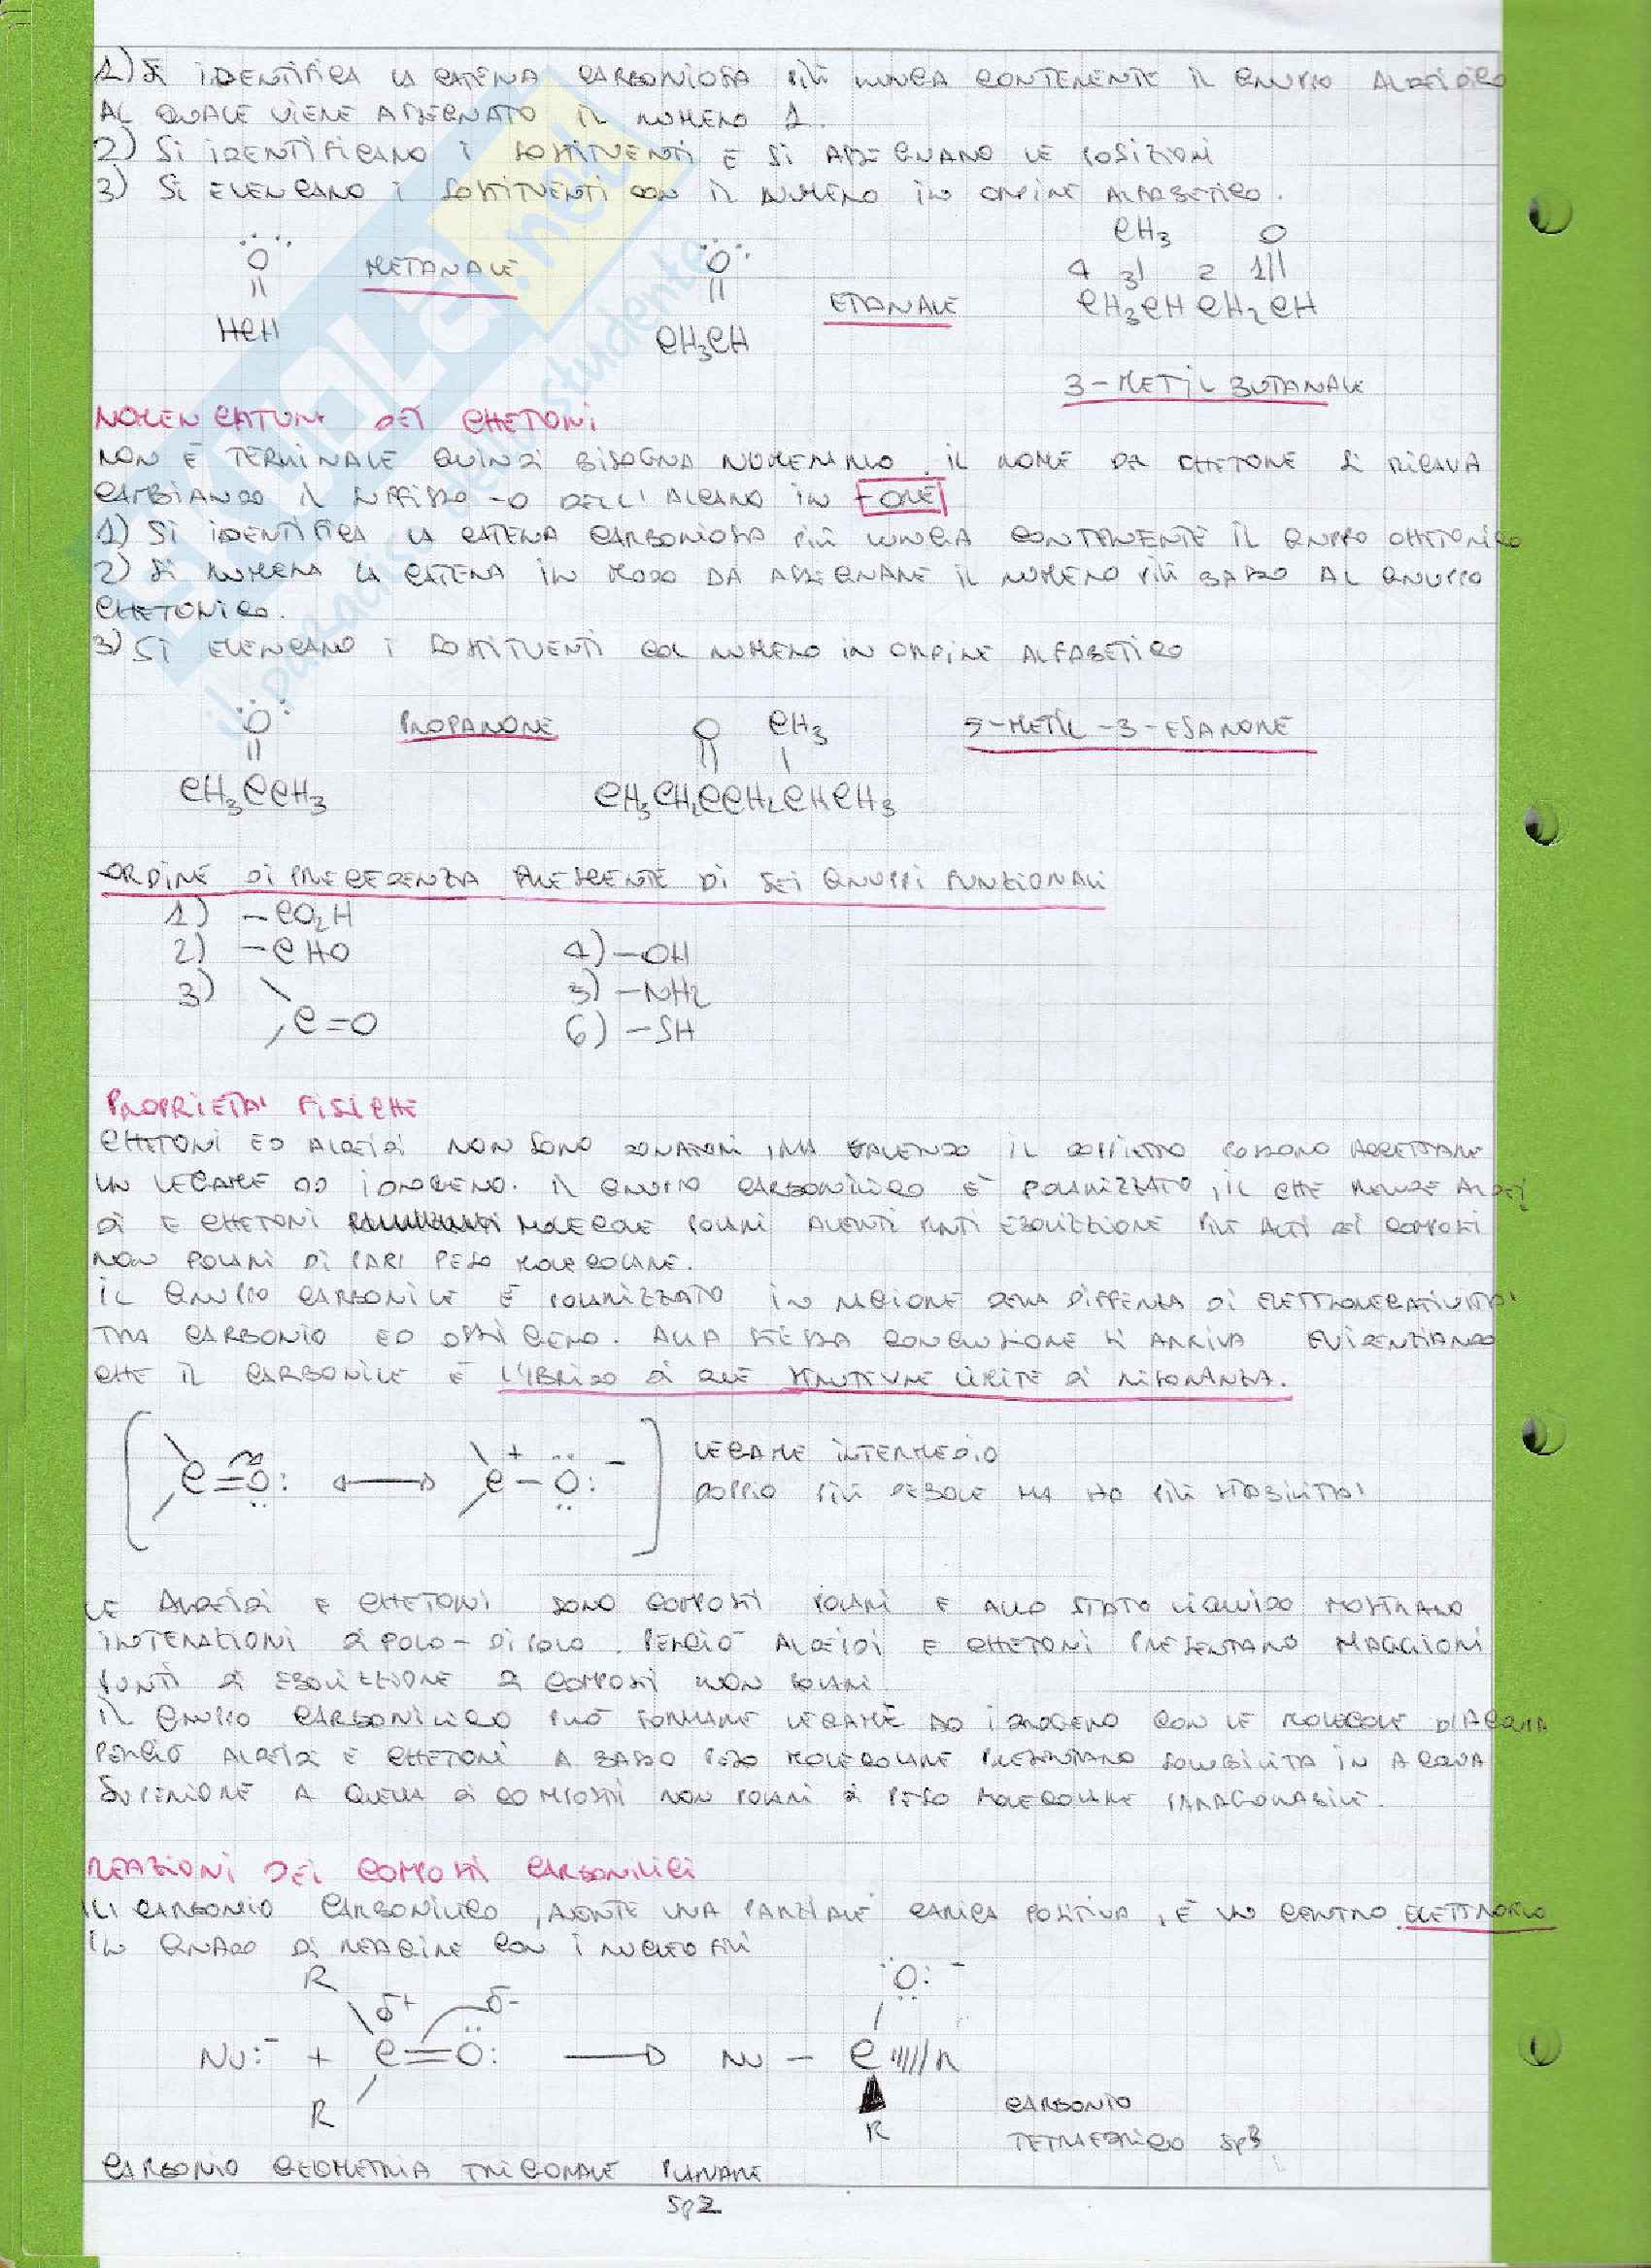 1) Si IDENTIFICA LA CATENA CARBONIOSA PIÙ LUNGA CONTENENTE IL GRUPPO ALDEIDICO
AL QUALE VIENE ASSEGNATO IL NUMERO 1.
2) Si IDENTIFICANO I SOSTITUENTI E Si ASSEGNANO LE POSIZIONI
3) Si ELENCANO I SOSTITUENTI CON IL NUMERO IN ORDINE ALFABETICO.
O
||
HCH
METANALE
O
||
CH3CH
ETANALE
CH3 O
4 3| 2 1||
CH3CH CH2 CH
3-METIL BUTANALE
NOMENCATURA DEI CHETONI
NON È TERMINALE QUINDI BISOGNA NUMERARLO. IL NOME DEL CHETONE SI RICAVA
CAMBIANDO IL SUFFISSO -O DELL'ALCANO IN -ONE
1) Si IDENTIFICA LA CATENA CARBONIOSA PIÙ LUNGA CONTENENTE IL GRUPPO CHETONICO
2) Si NUMERA LA CATENA IN MODO DA ASSEGNARE IL NUMERO PIÙ BASSO AL GRUPPO
CHETONICO.
3) Si ELENCANO I SOSTITUENTI COL NUMERO IN ORDINE ALFABETICO
O
||
CH3CCH3
PROPANONE
O CH3
|| |
CH3CH2CCH2CHCH3
5-METIL-3-ESANONE
ORDINE DI PRECEDENZA DI SEI GRUPPI FUNZIONALI
1) -CO2H
2) -CHO
3) C=O
4) -OH
5) -NH2
6) -SH
PROPRIETA' FISICHE
CHETONI ED ALDEIDI NON SONO DONATORI, MA AVENDO IL DOPPIETTO POSSONO ACCETTARE
UN LEGAME AD IDROGENO. IL GRUPPO CARBONILICO È POLARIZZATO, IL CHE RENDE ALDEI
DI E CHETONI MOLECOLE POLARI AVENTI PUNTI EBOLLIZIONE PIÙ ALTI DEI COMPOSTI
NON POLARI DI PARI PESO MOLECOLARE.
IL GRUPPO CARBONILE È POLARIZZATO IN RAGIONE DELLA DIFFENZA DI ELETTRONEGATIVITA'
TRA CARBONIO ED OSSIGENO. ALLA STESSA CONCLUSIONE SI ARRIVA EVIDENZIANDO
CHE IL CARBONILE È L'IBRIDO DI DUE STRUTTURE LIMITE DI RISONANZA.
C=O: ↔ C+-O:-
LEGAME INTERMEDIO
DOPPIO PIÙ DEBOLE MA HA PIÙ STABILITA'
LE ALDEIDI E CHETONI SONO COMPOSTI POLARI E ALLO STATO LIQUIDO MOSTRANO
INTERAZIONI DIPOLO-DIPOLO. PERCIÒ ALDEIDI E CHETONI PRESENTANO MAGGIORI
PUNTI DI EBOLLIZIONE DI COMPOSTI NON POLARI.
IL GRUPPO CARBONILICO PUÒ FORMARE LEGAME AD IDROGENO CON LE MOLECOLE D'ACQUA
PERCIÒ ALDEIDI E CHETONI A BASSO PESO MOLECOLARE PRESENTANO SOLUBILITÀ IN ACQUA
SUPERIORE A QUELLA DI COMPOSTI NON POLARI DI PESO MOLECOLARE PARAGONABILE.
REAZIONI DEI COMPOSTI CARBONILICI
IL CARBONIO CARBONILICO, AVENTE UNA PARZIALE CARICA POSITIVA, È UN CENTRO ELETTROFILO
IN GRADO DI REAGIRE CON I NUCLEOFILI
R δ+ δ-
Nu:- + C=O: → Nu - C R
R
O:-
R
CARBONIO
TETRAEDRICO sp3
CARBONIO GEOMETRIA TRIGONALE PLANARE
sp2
SKUOLA.net
il paradiso dello studente